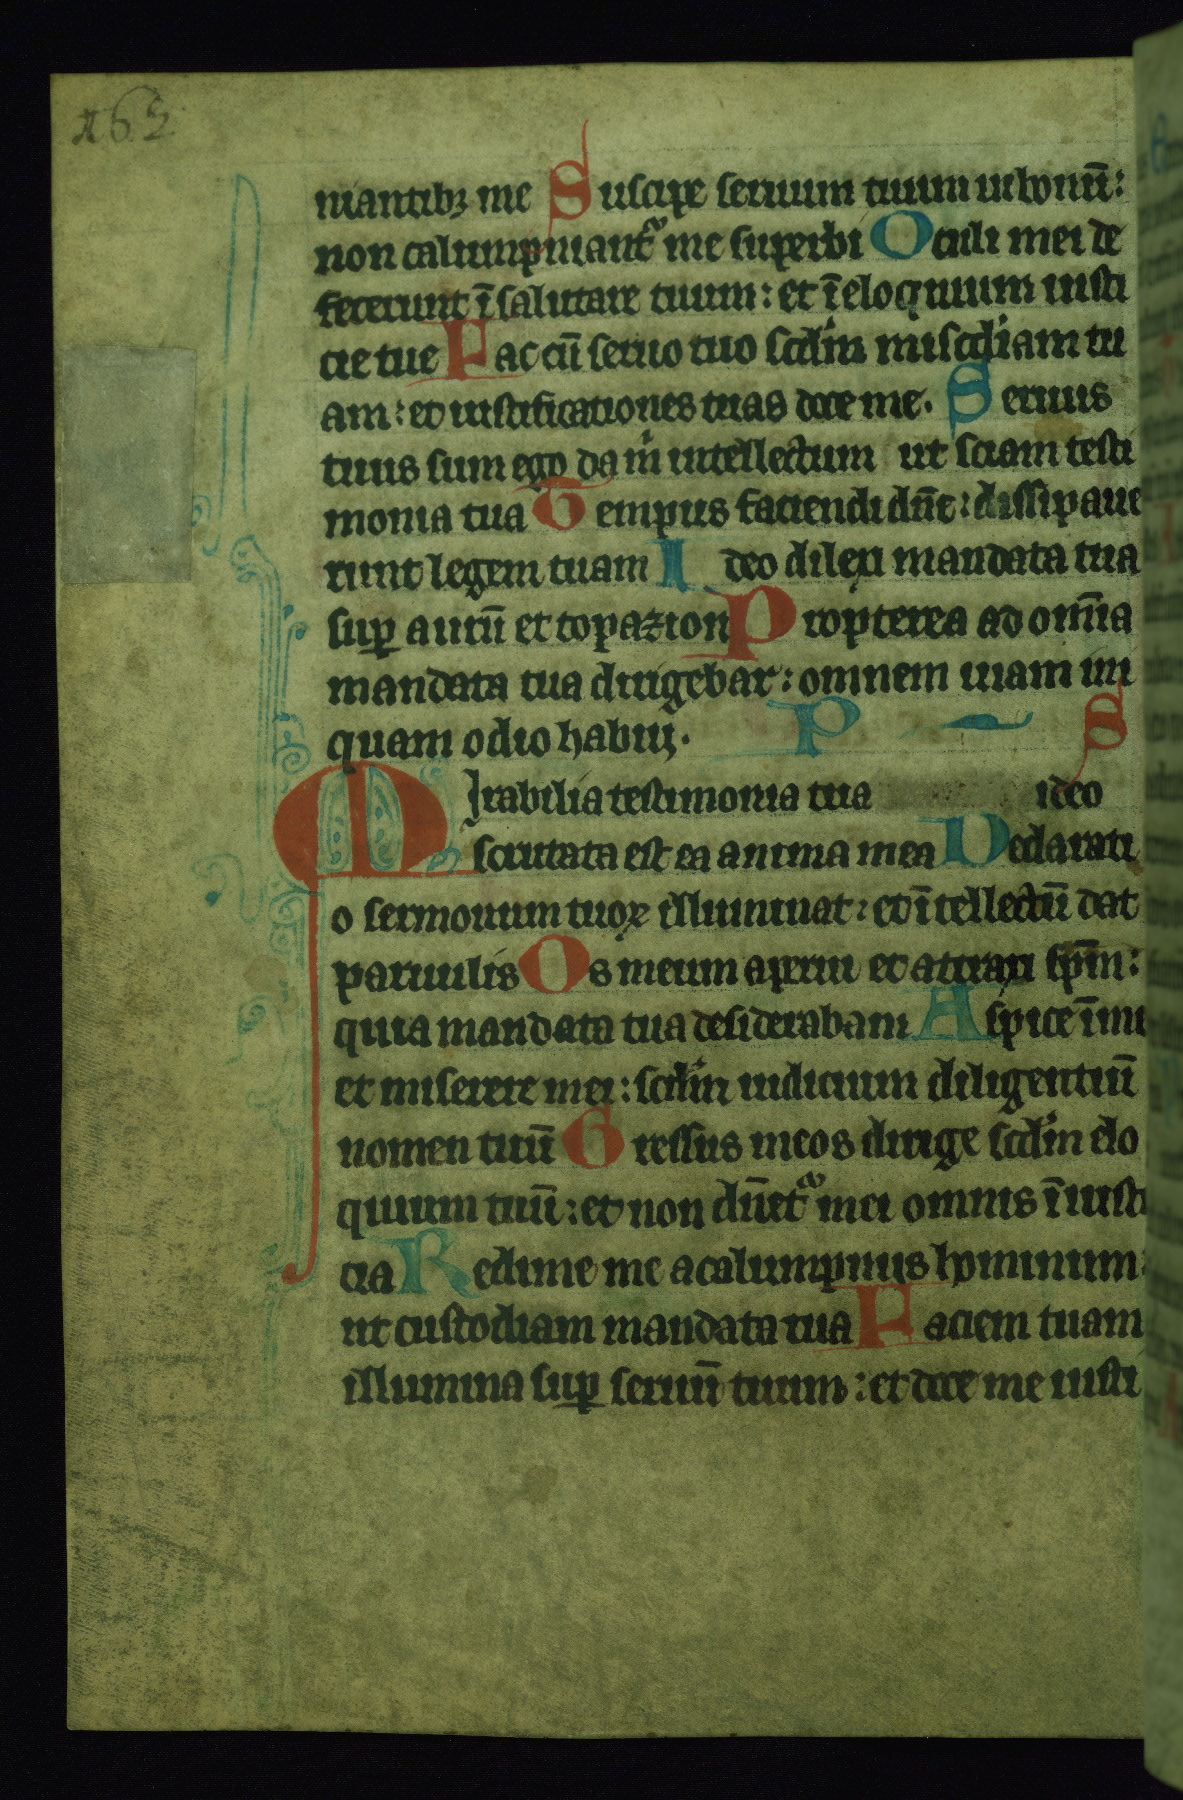 162
niantibꝫ me Suscipe seruum tuum in bonū:
non calumpniantᷣ me superbi Oculi mei de
fecerunt ī salutare tuum: et ī eloquium iusti
cie tue Fac cū seruo tuo scd̄m miscd̄iam tu
am: et iustificationes tuas doce me. Seruus
tuus sum ego da m̄ intellectum ut sciam testi
monia tua Tempus faciendi dn̄e: dissipaue
runt legem tuam Ideo dilexi mandata tua
suꝑ aurū et topazion Propterea ad om̄ia
mandata tua dirigebar: omnem uiam ini
quam odio habui. P S
Mirabilia testimonia tua ideo
scrutata est ea anima mea Declarati
o sermonum tuoꝝ illuminat: et ītellectū dat
paruulis Os meum aperui et attraxi sp̄m:
quia mandata tua desiderabam Aspice ī me
et miserere mei: scd̄m iudicium diligentiū
nomen tuū Gressus meos dirige scd̄m elo
quium tuū: et non dn̄etᷣ mei omnis ī iusti
cia Redime me a calumpniis hominum:
ut custodiam mandata tua Faciem tuam
illumina suꝑ seruū tuum: et doce me iusti